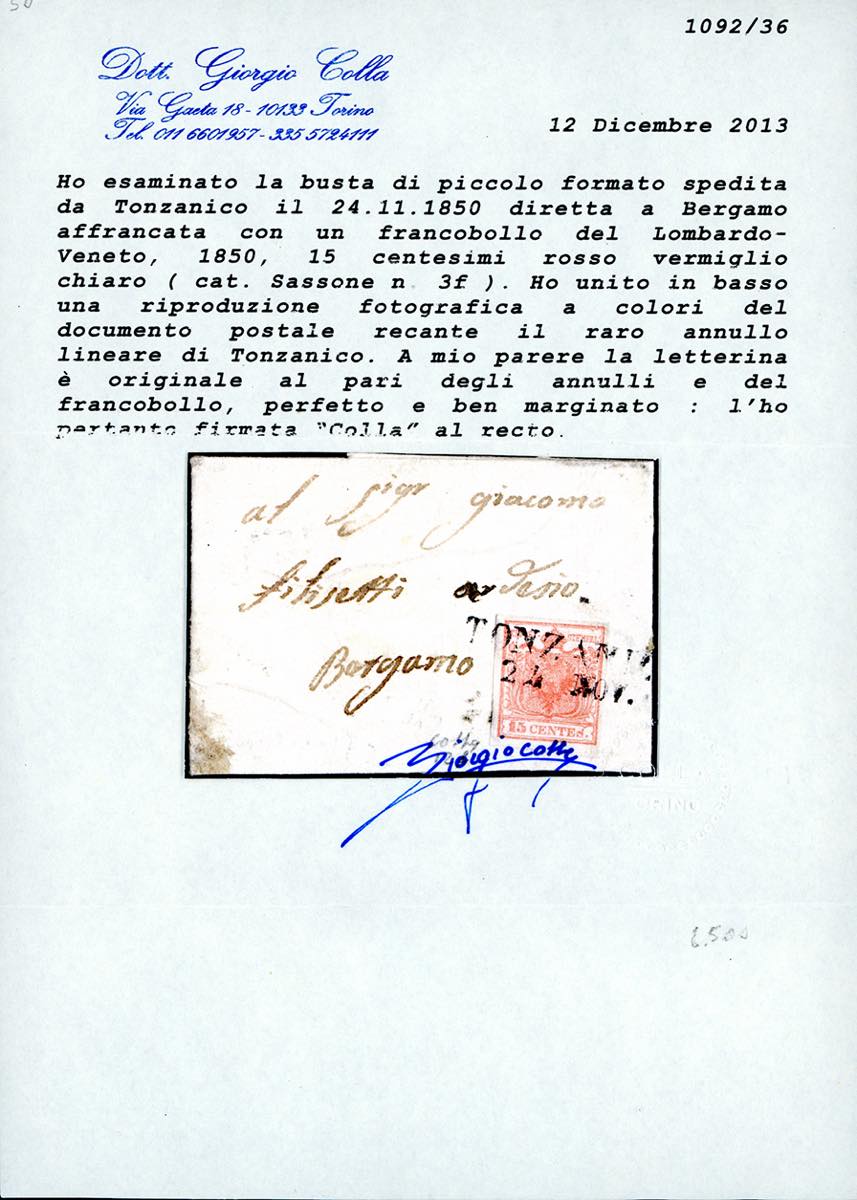 50
1092/36
Dott. Giorgio Colla
Via Gaeta 18 - 10133 Torino
Tel. 011 6601957 - 335 5724111
12 Dicembre 2013
Ho esaminato la busta di piccolo formato spedita
da Tonzanico il 24.11.1850 diretta a Bergamo
affrancata con un francobollo del Lombardo-
Veneto, 1850, 15 centesimi rosso vermiglio
chiaro ( cat. Sassone n. 3f ). Ho unito in basso
una riproduzione fotografica a colori del
documento postale recante il raro annullo
lineare di Tonzanico. A mio parere la letterina
è originale al pari degli annulli e del
francobollo, perfetto e ben marginato : l'ho
pertanto firmata "Colla" al recto.
al Sigr giacomo
filisetti
Bergamo
TONZANI
24 NOV.
15 CENTES.
Colla
Giorgio Colla
6.500